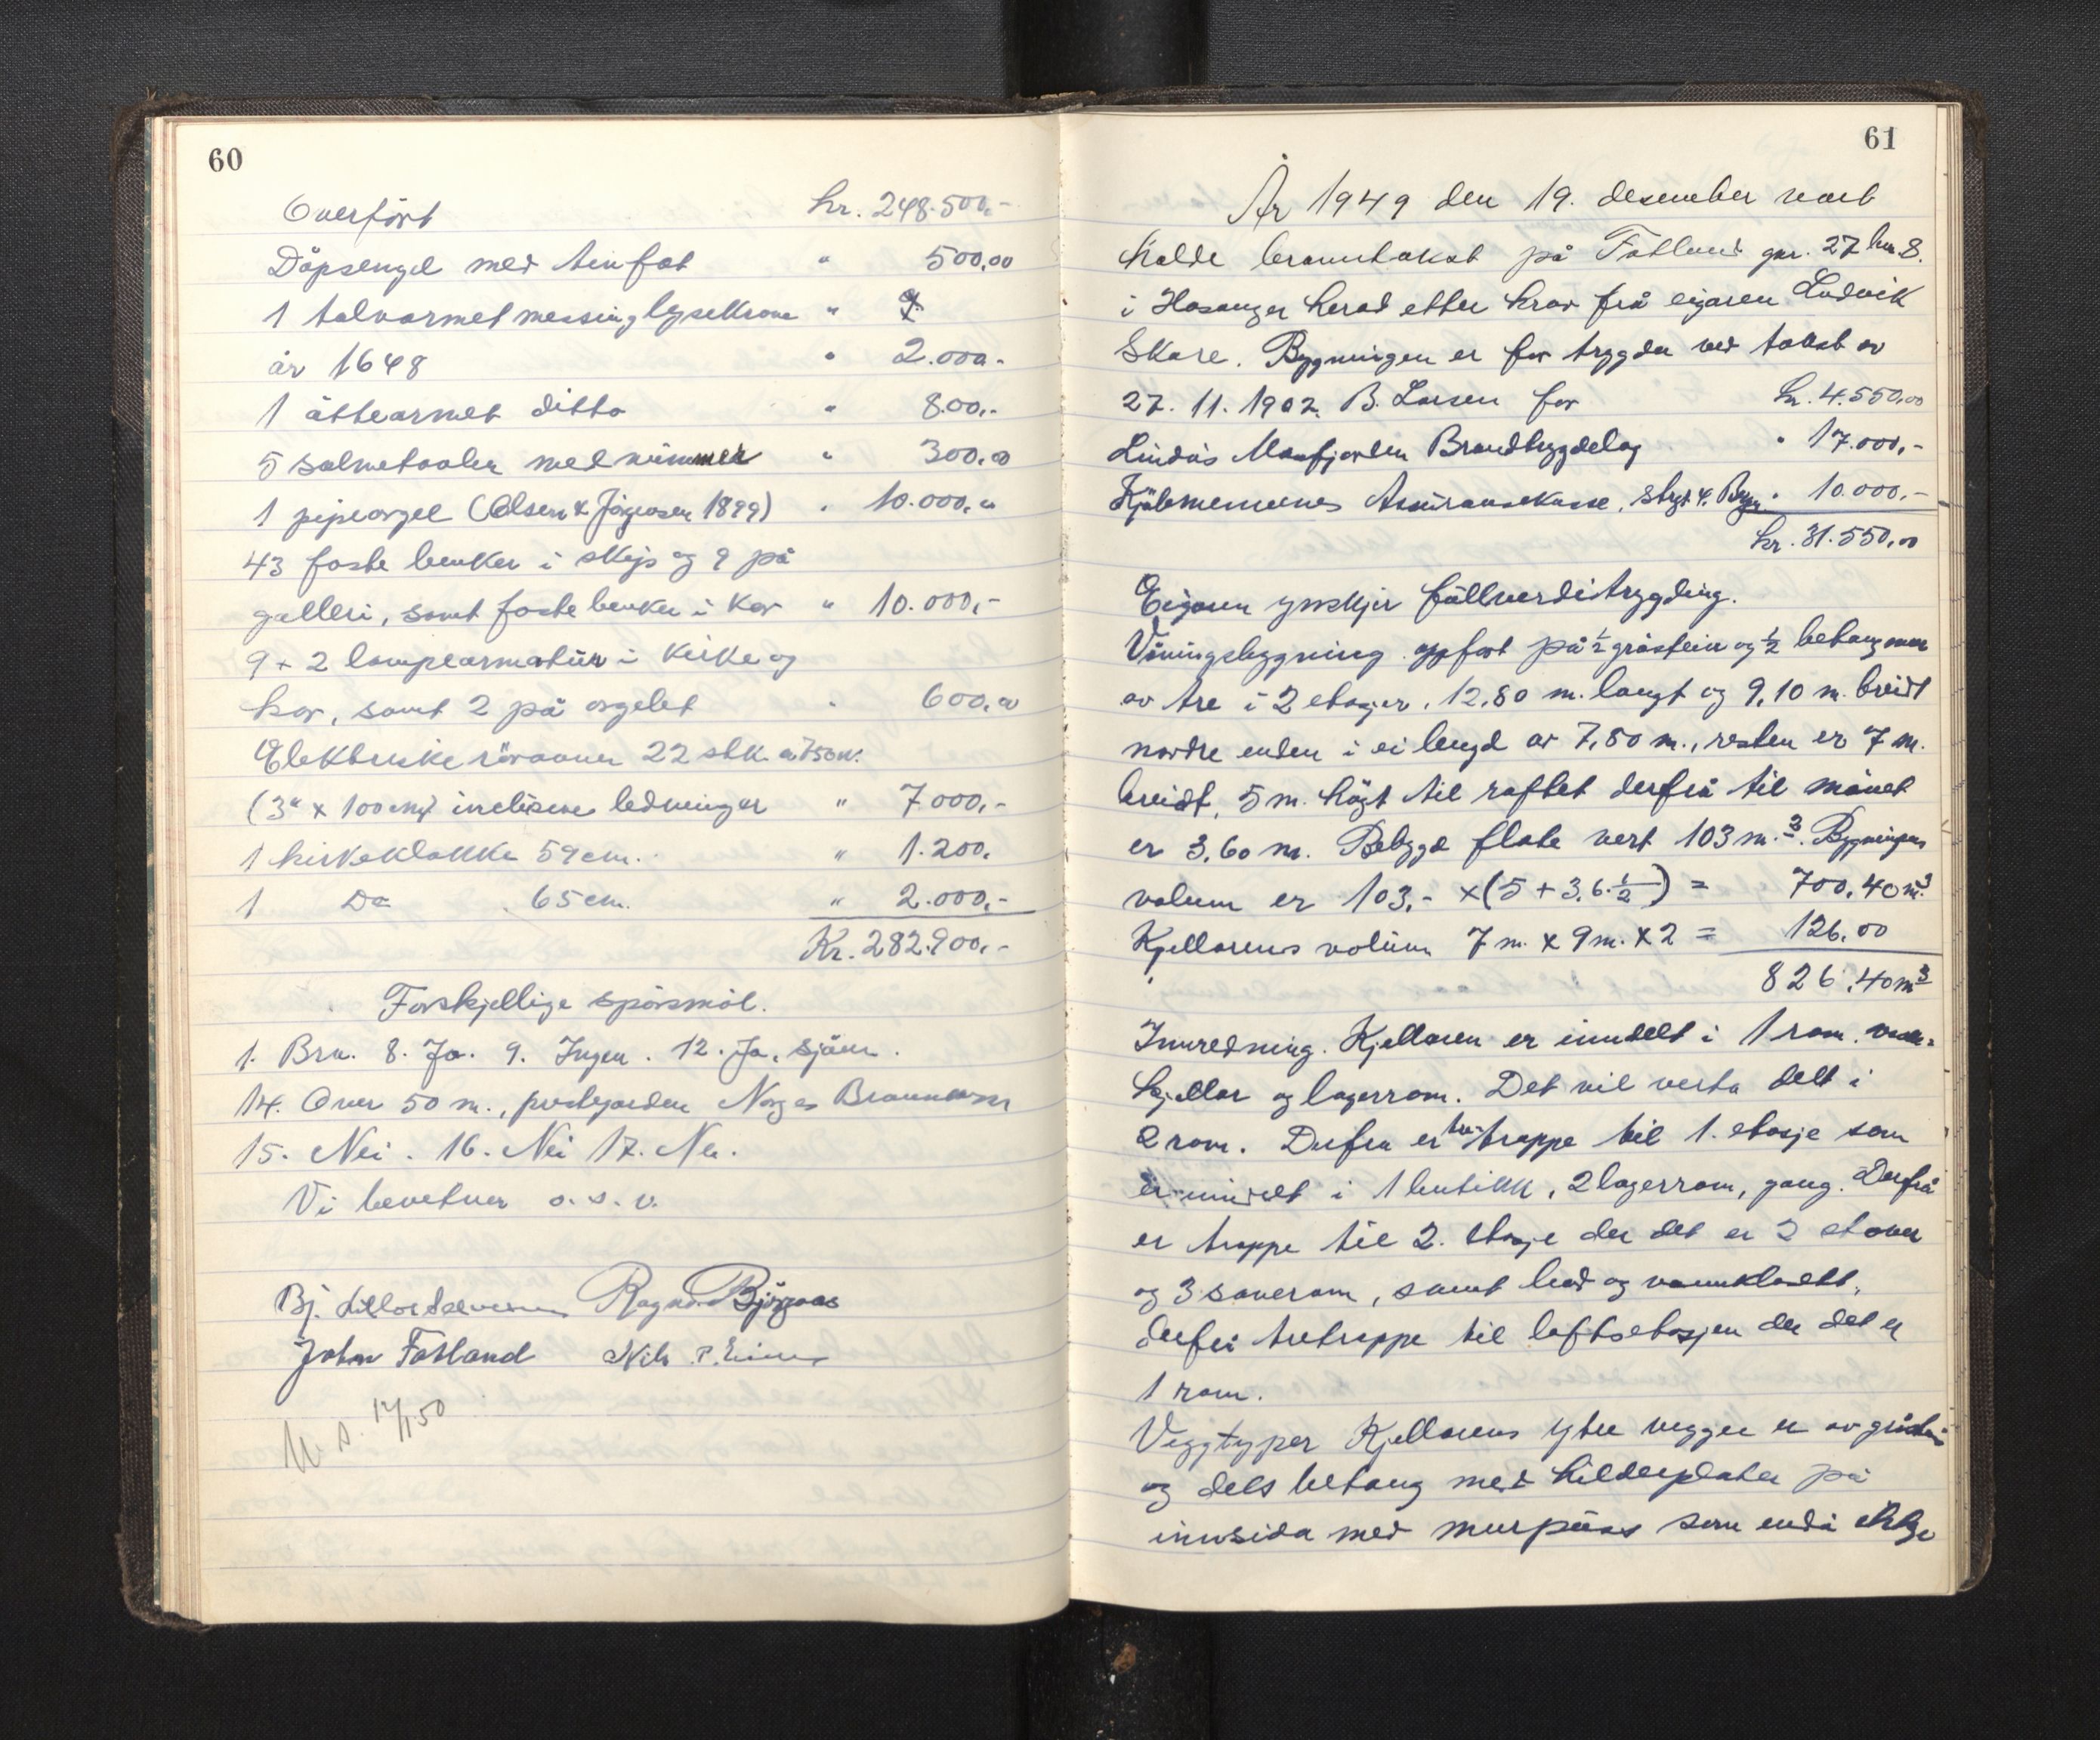 60
Overfört kr. 248.500,-
Döpsengel med tinfat " 500,00
1 tolvarmet messing lysekrone "
år 1648 " 2.000.-
1 åttearmet ditto " 800,-
5 salmetavler med nummer " 300,00
1 pipeorgel (Olsen & Jörgensen 1899) " 10.000,00
43 faste benker i skip og 9 på
galleri, samt faste benker i kor " 10.000,-
9 + 2 lampearmatur i kirke og
kor, samt 2 på orgelet " 600,00
Elektriske rörovner 22 stk. a 750W.
(3" x 100cm) inclusive ledninger " 7000,-
1 kirkeklokke 59cm. " 1.200.
1 Do 65cm. " 2.000,-
Kr. 282.900,-
Forskjellige spörsmål.
1. Bra. 8. Ja. 9. Ingen. 12. Ja, sjöen.
14. Over 50 m., prestegarden Norges Brannkasse
15. Nei. 16. Nei 17. Nei.
Vi bevitner o.s.v.
Bj. Ragnar Bjørgaas
John Fatland Nils P.
12/1 50
61
År 1949 den 19. desember vart
halde branntakst på Fatland gnr. 27 bnr. 8.
i Hosanger herad etter krav frå eigaren Ludvik
Skare. Bygningen er før trygda ved takst av
27. 11. 1902. B. Larsen for kr. 4.550,00
Lindås Masfjorden Brandtrygdelag " 17.000,-
Kjöbmennenes Assuransekasse, Strgt. 4. Bergen " 10.000,-
kr. 31.550,00
Eigaren ynskjer fullverditrygding.
Våningsbygning oppfört på ½ gråstein og ½ betongmur
av tre i 2 etasjer, 12,80 m. langt og 9,10 m. breidt
nordre enden i ei lengd av 7,80 m., resten er 7 m.
breidt, 5 m. högt til raftet derfrå til mönet
er 3,60 m. Bebygd flate vert 103 m.². Bygningens
volum er 103,- x (5 + 3,6·½) = 700,40 m³
Kjellarens volum 7 m. x 9 m. x 2 = 126,00
826,40 m³
Innredning. Kjellaren er inndelt i 1 rom.
kjellar og lagerrom. Det vil verta delt i
2 rom. Derfra er tre-trappe til 1. etasje som
er inndelt i 1 butikk, 2 lagerrom, gang. Derfrå
er trappe til 2. etasje der det er 2 stover
og 3 soverom, samt bad og vannklosett,
derfrå tretrappe til loftsetasjen der det er
1 rom.
Veggtyper Kjellarens ytre vegger er av gråstein
og dels betong med kilderplater på
innsida med murpuss som endå ikkje